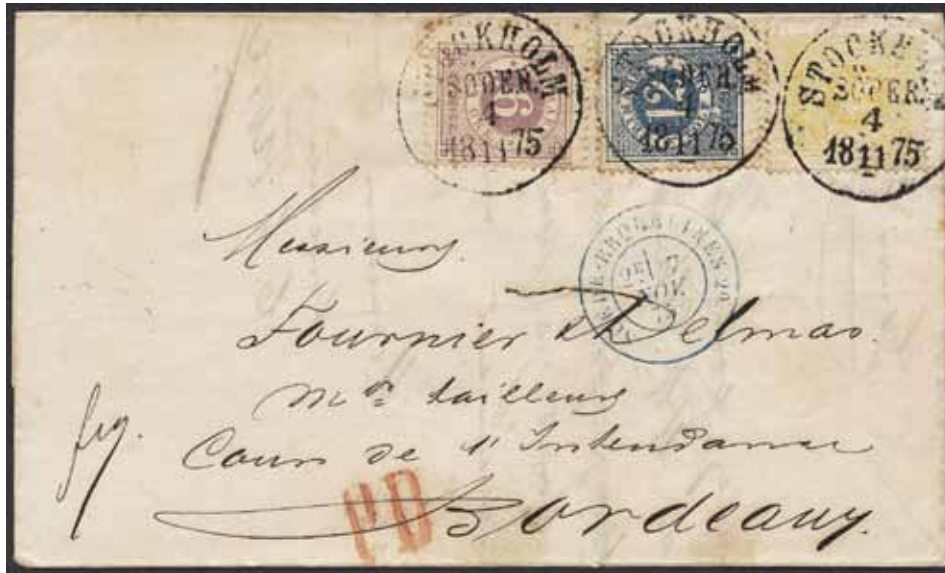 STOCKHOLM
SÖDER.
4
18 11 75
6
STOCKHOLM
SÖDER.
4
18 11 75
12
STOCKH
SÖDER.
4
18 11 75
Messieurs
2E 7
NOV
Fournier & Delmas.
Mds tailleurs
frg.
Cours de l'Intendance
PD
Bordeaux.